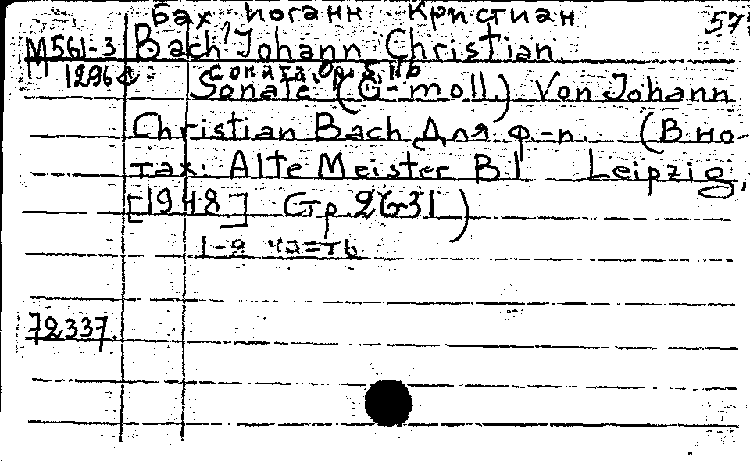 Бах Иоганн Кристиан 57
М561-3 Bach, Johann Christian
М 1296
Соната, Ор. 5, №6
Sonate (G-moll) Von Johann
Christian Bach Для ф-п. (В но-
тах: Alte Meister B I Leipzig,
[1948] Стр. 26-31)
1-я часть
72337.